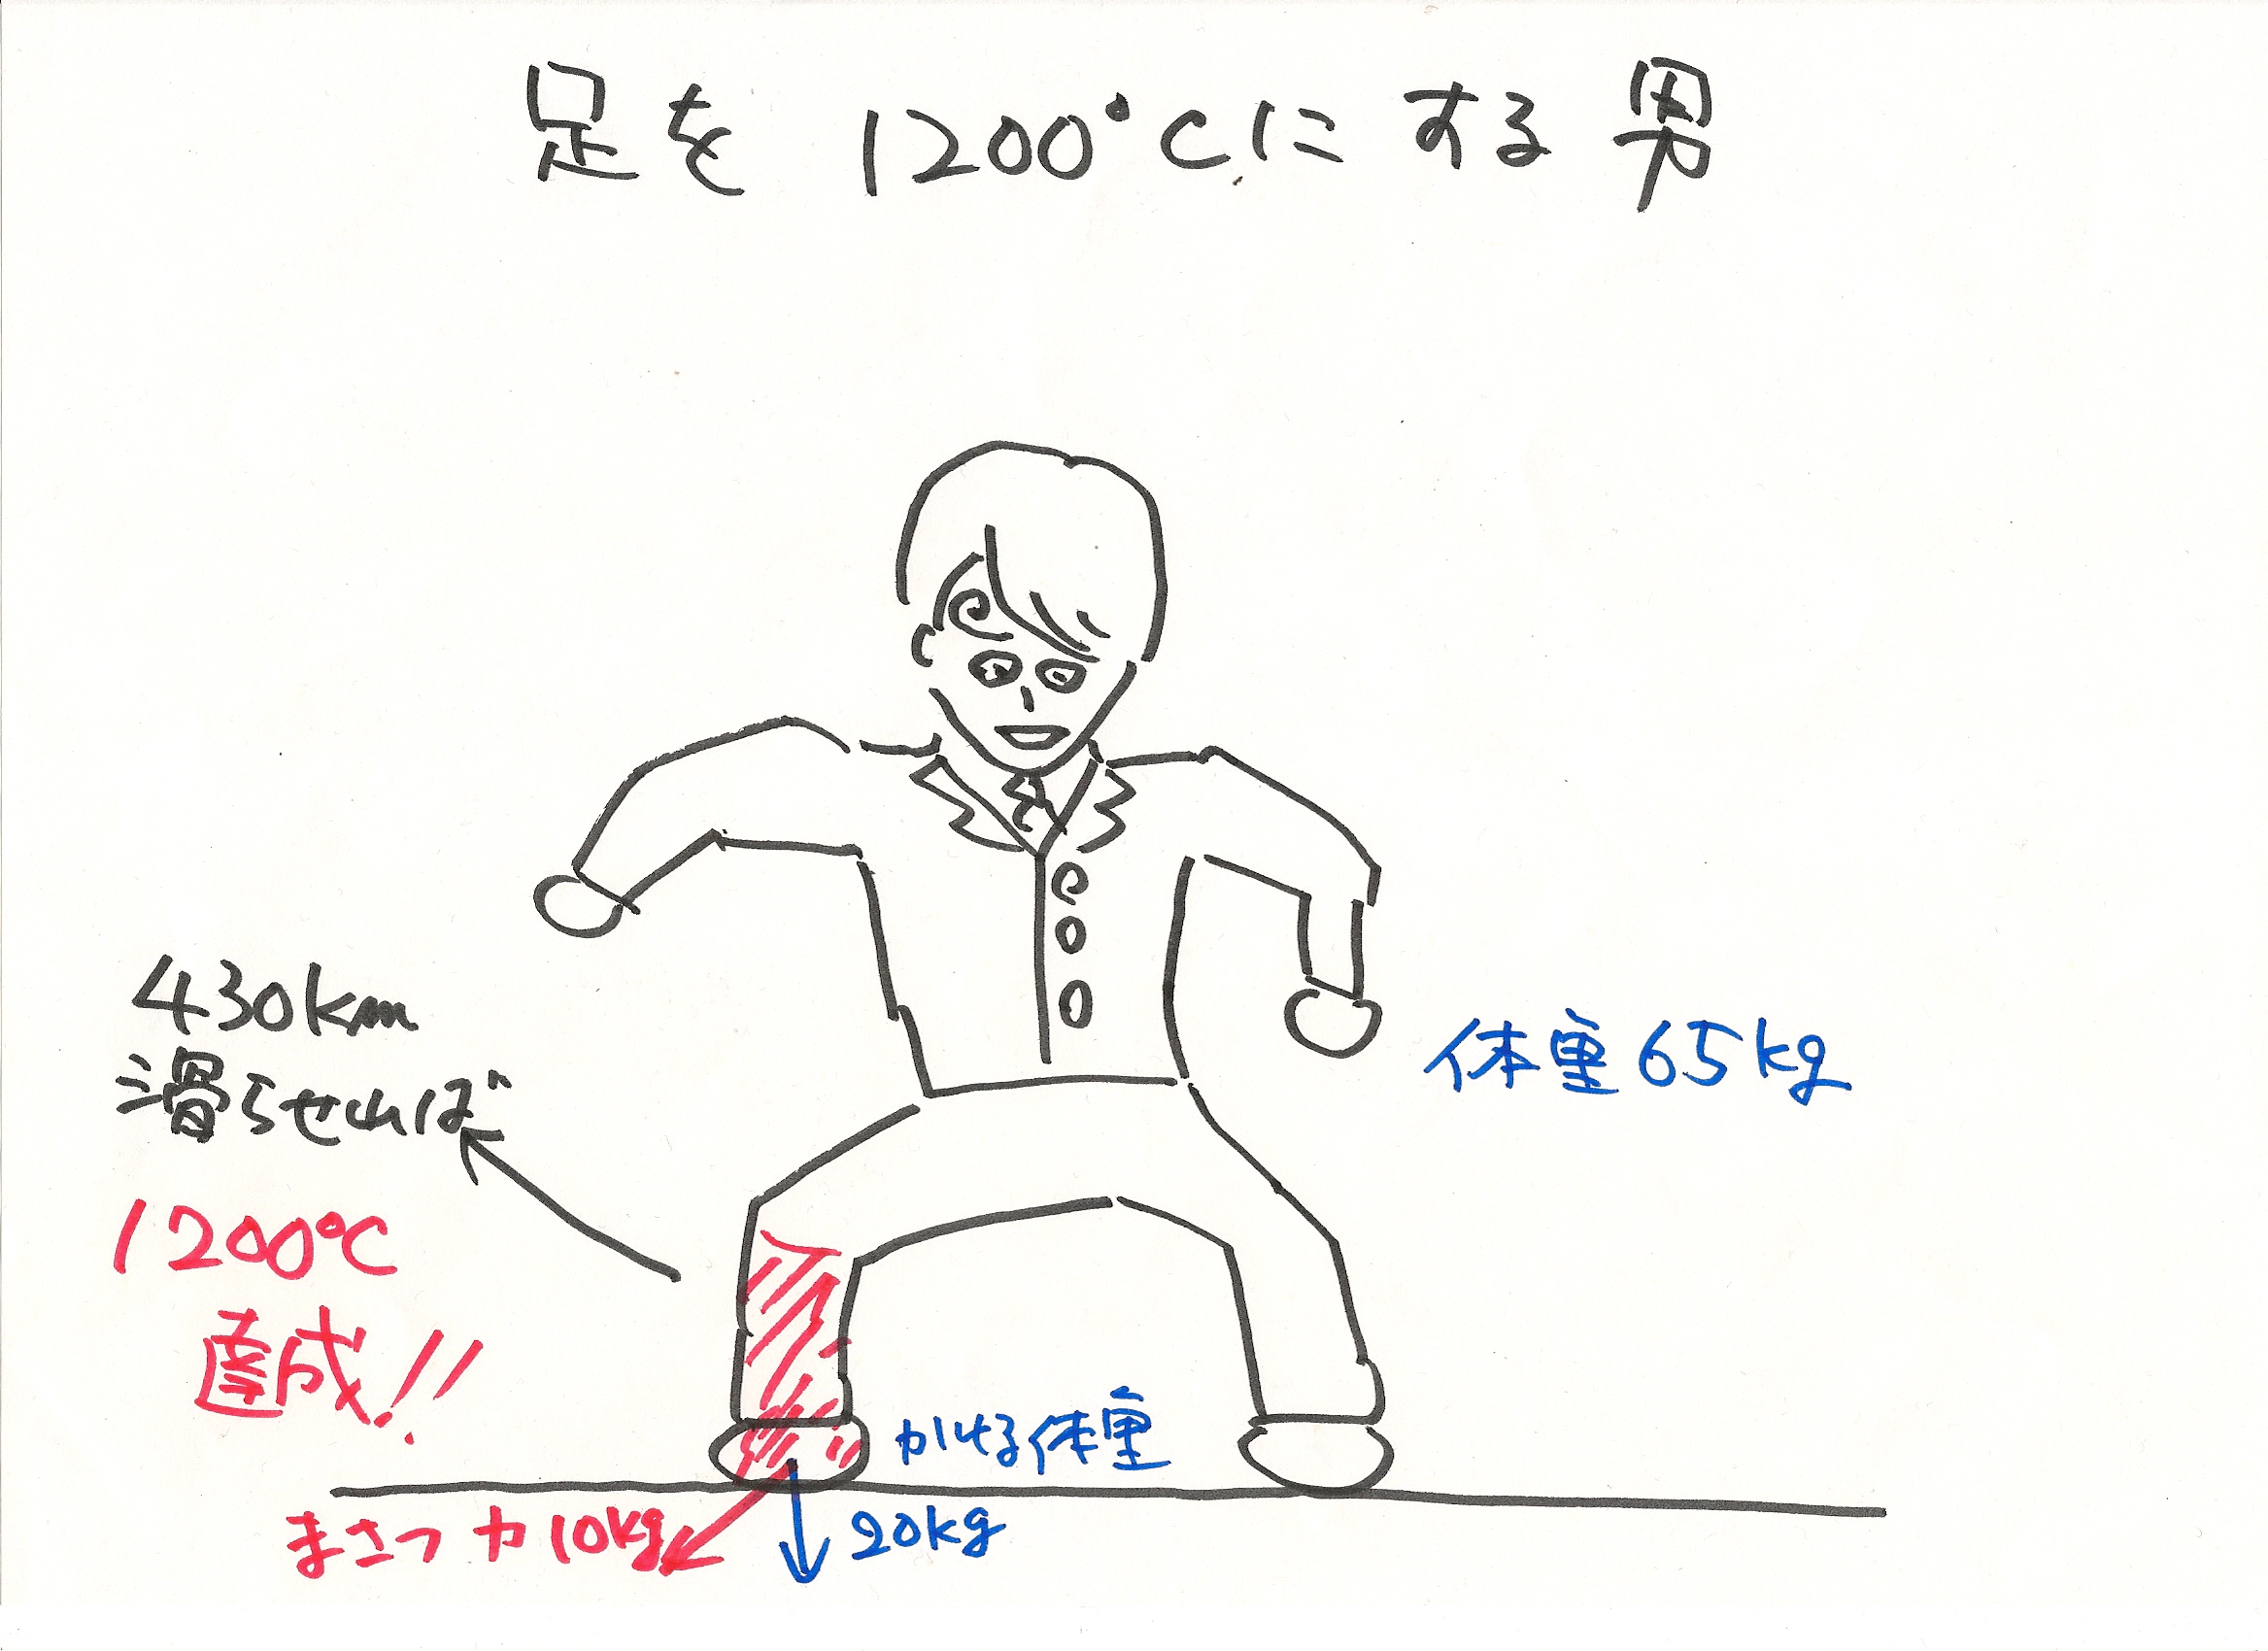 足を1200℃にする男
430km
滑らせれば
1200℃
達成!!
体重65kg
かける体重
20kg
まさつ力10kg